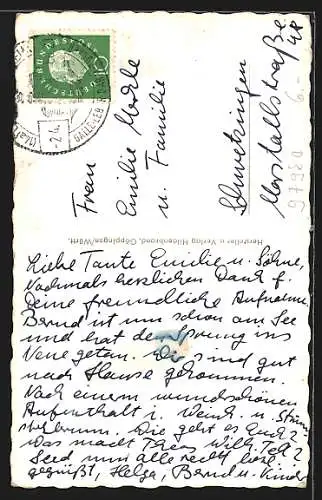 DEUTSCHE BUNDESPOST
10
Frau
Emilie Merkle
u. Familie
Schwetzingen
Marstallstraße
48
9792a 6.-
Hersteller u. Verlag Hildenbrand, Göppingen/Württ.
Liebe Tante Emilie u. Söhne,
Nochmals herzlichen Dank f.
Deine freundliche Aufnahme
Bernd ist nun schon am See
und hat den Sprung ins
Neue getan. Wir sind gut
nach Hause gekommen.
Nach einem wunderschönen
Aufenthalt i.
Wie geht es Euch?
Was macht Willy
Seid nun alle recht lieb
gegrüßt, Helga, Bernd u. Kinder